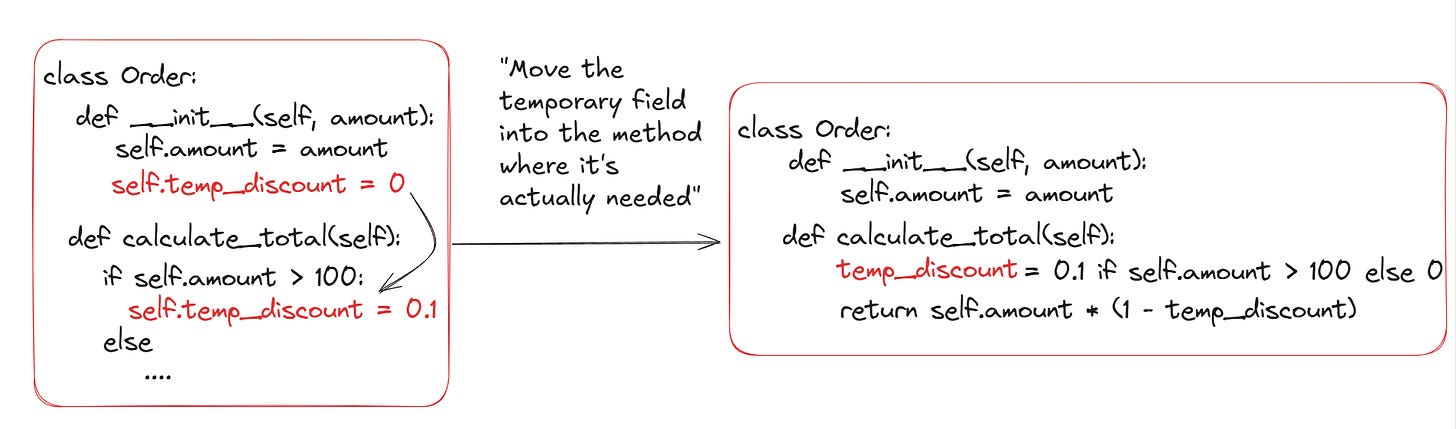 class Order:
def __init__(self, amount):
self.amount = amount
self.temp_discount = 0
def calculate_total(self):
if self.amount > 100:
self.temp_discount = 0.1
else
....
"Move the
temporary field
into the method
where it's
actually needed"
class Order:
def __init__(self, amount):
self.amount = amount
def calculate_total(self):
temp_discount = 0.1 if self.amount > 100 else 0
return self.amount * (1 - temp_discount)